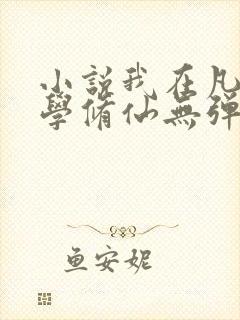 小說我在凡
學脩仙無彈
鱼安妮